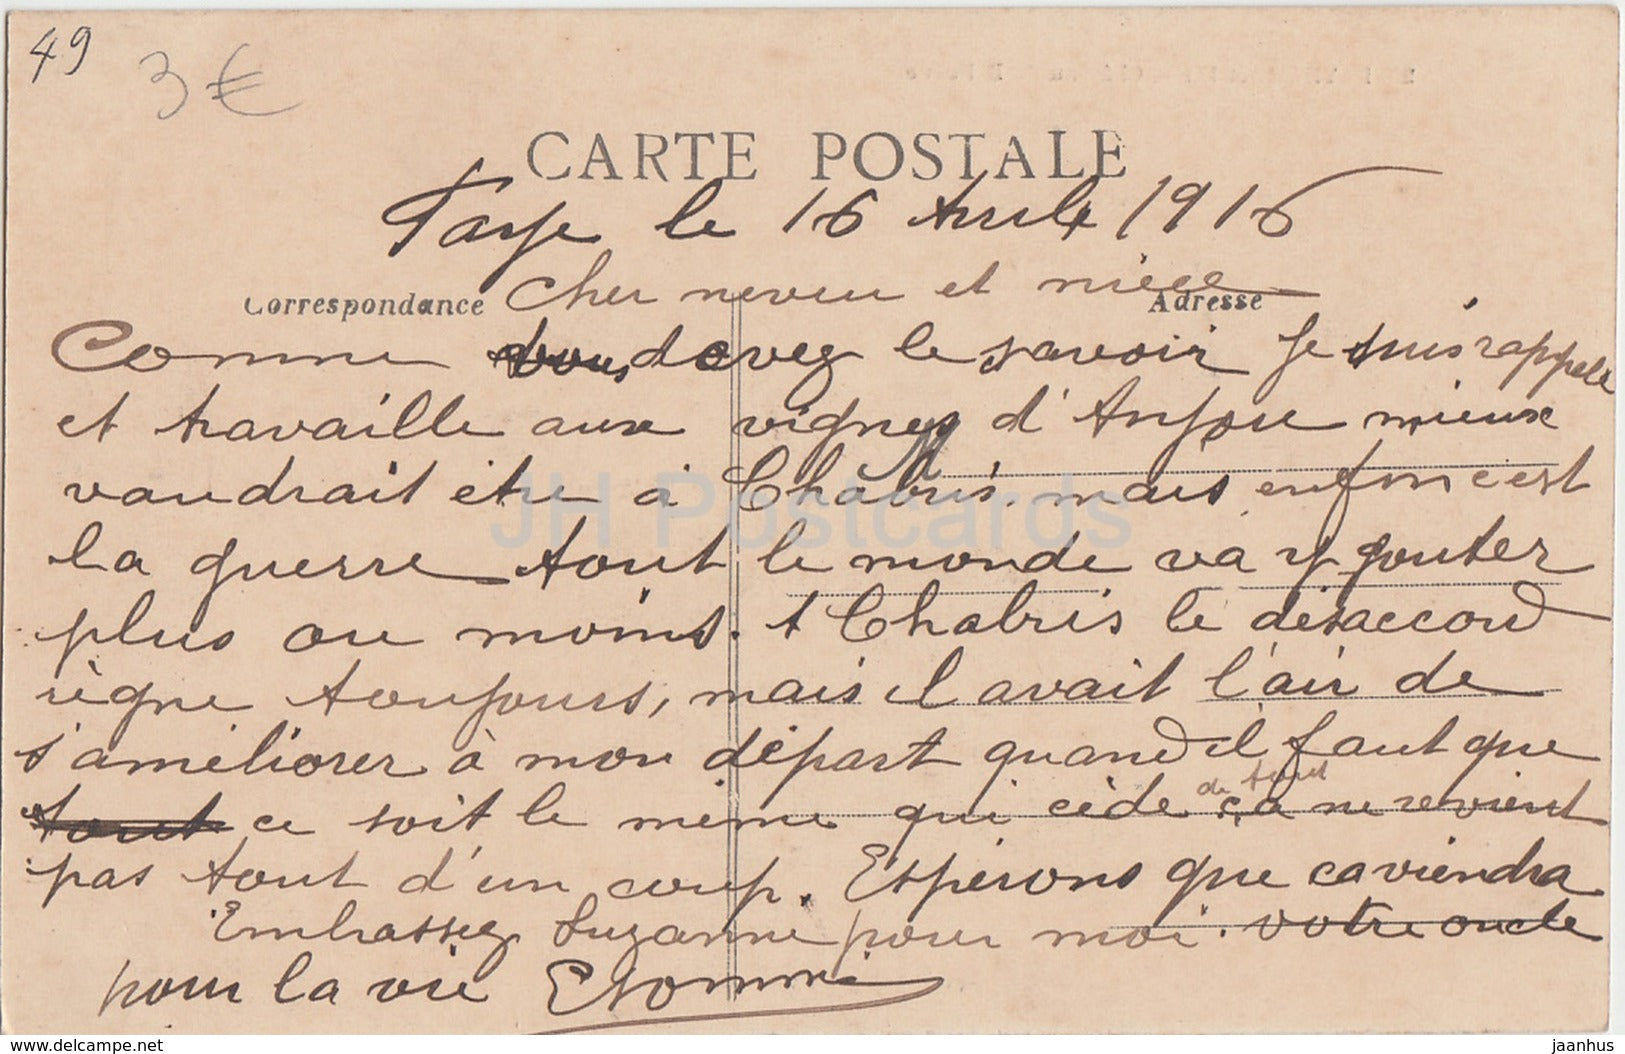 49
3 €
CARTE POSTALE
le 16 Avril 1916
Cher neveu et nièce
Correspondance
Adresse
Comme vous devez le savoir je suis rappelé
et travaille aux vignes d'Anjou mieux
vaudrait être à Chabris, mais enfin c'est
la guerre tout le monde va y gouter
plus ou moins. A Chabris le désaccord
règne toujours, mais il avait l'air de
s'améliorer à mon départ quand il faut que
de tout
tout ce soit le même qui cède ça ne revient
pas tout d'un coup. Espérons que ca viendra
Embrassez Suzanne pour moi. votre oncle
pour la vie
JH Postcards
delcampe.net
jaanhus